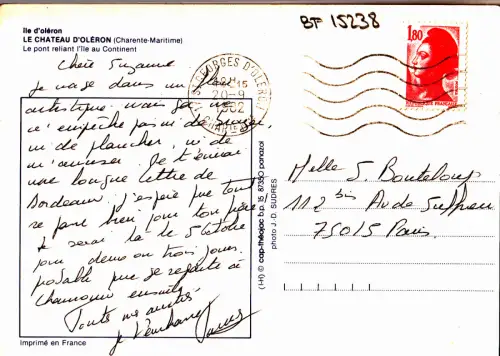 île d'oléron
LE CHATEAU D'OLÉRON (Charente-Maritime)
Le pont reliant l'île au Continent
BF 15238
1,80
ST GEORGES D'OLERON
20-9
Chère Suzanne
je nage dans un
artistique mais ça ne
m'empêche pas ni de
ni de plancher, ni de
m'amuser. Je t'écrirai
une longue lettre de
Bordeaux. j'espère que tout
se passe bien pour ton père
Je serai là le 5 Octobre
pour deux ou trois jours.
probable que je reparte à
Chamonix ensuite.
Toutes mes amitiés
je t'embrasse
Imprimé en France
(1-H) © cap-théojac b.p. 15 87350 panazol
photo J.-D. SUDRES
Melle S. Bouteloup
112 bis Av de Suffren
75015 Paris